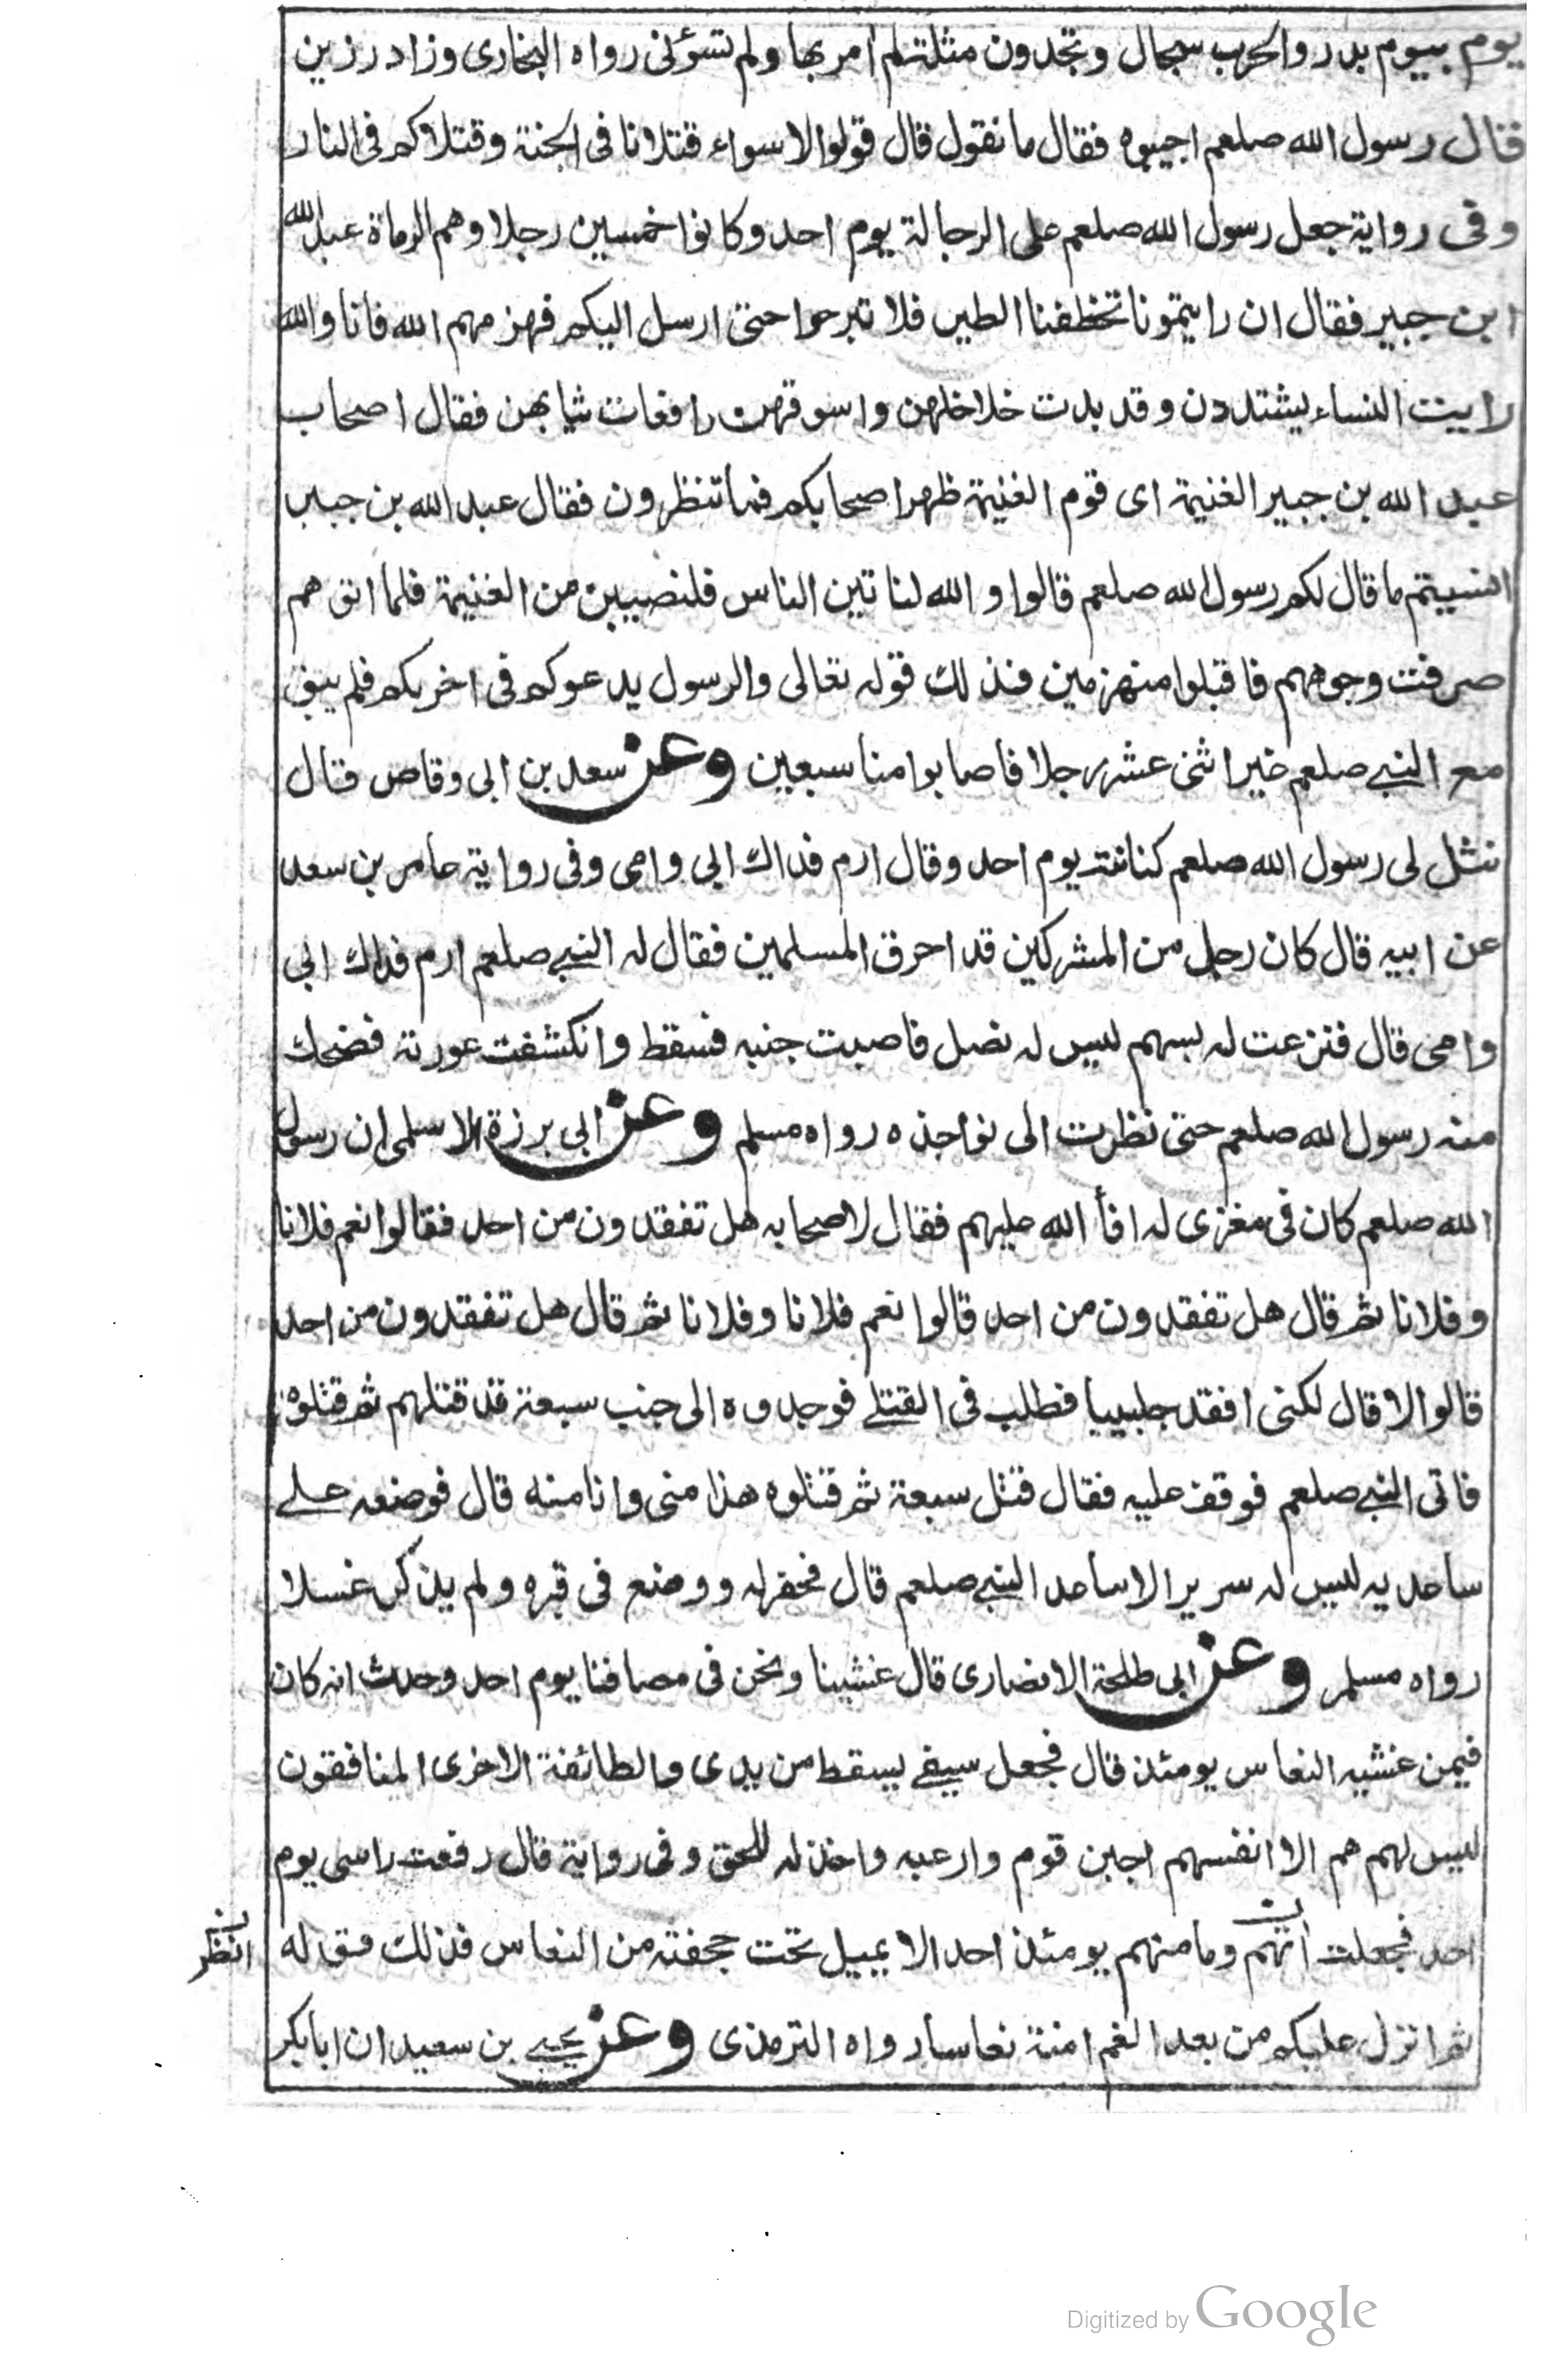 يوم بيوم بدر والحرب سجال وتجدون مثلة لم آمر بها ولم تسؤنى رواه البخارى وزاد رزين
فقال رسول الله صلعم اجيبوه فقال ما نقول قال قولوا لا سواء قتلانا فى الجنة وقتلاكم فى النار
وفى رواية جعل رسول الله صلعم على الرجالة يوم احد وكانوا خمسين رجلا وهم الرماة عبد الله
ابن جبير فقال ان رايتمونا تخطفنا الطير فلا تبرحوا حتى ارسل اليكم فهزمهم الله فانا والله
رايت النساء يشتددن وقد بدت خلاخلهن واسوقهن رافعات ثيابهن فقال اصحاب
عبد الله بن جبير الغنيمة اى قوم الغنيمة ظهر اصحابكم فما تنظرون فقال عبد الله بن جبير
انسيتم ما قال لكم رسول الله صلعم قالوا والله لناتين الناس فلنصيبن من الغنيمة فلما اتوهم
صرفت وجوههم فاقبلوا منهزمين فذلك قوله تعالى والرسول يدعوكم فى اخريكم فلم يبق
مع النبى صلعم غير اثنى عشر رجلا فاصابوا منا سبعين وعن سعد بن ابى وقاص قال
نثل لى رسول الله صلعم كنانته يوم احد وقال ارم فداك ابى وامى وفى رواية عامر بن سعد
عن ابيه قال كان رجل من المشركين قد احرق المسلمين فقال له النبى صلعم ارم فداك ابى
وامى قال فنزعت له بسهم ليس له نصل فاصبت جنبه فسقط وانكشفت عورته فضحك
منه رسول الله صلعم حتى نظرت الى نواجذه رواه مسلم وعن ابى برزة الاسلمى ان رسول
الله صلعم كان فى مغزى له افأ الله عليهم فقال لاصحابه هل تفقدون من احد فقالوا نعم فلانا
وفلانا ثم قال هل تفقدون من احد قالوا نعم فلانا وفلانا ثم قال هل تفقدون من احد
قالوا لا قال لكنى افقد جليبيبا فطلب فى القتلى فوجدوه الى جنب سبعة قد قتلهم ثم قتلوه
فاتى النبى صلعم فوقف عليه فقال قتل سبعة ثم قتلوه هذا منى وانا منه قال فوضعه على
ساعديه ليس له سرير الا ساعد النبى صلعم قال فحفر له ووضع فى قبره ولم يذكر غسلا
رواه مسلم وعن ابى طلحة الانصارى قال غشينا ونحن فى مصافنا يوم احد وحدث انه كان
فيمن غشيه النعاس يومئذ قال فجعل سيفى يسقط من يدى والطائفة الاخرى المنافقون
ليس لهم هم الا انفسهم اجبن قوم وارعبه واخذله للحق وفى رواية قال رفعت راسى يوم
احد فجعلت انهم وما منهم يومئذ احد الا يميل تحت جحفته من النعاس فذلك قوله
انظر
ثم انزل عليكم من بعد الغم امنة نعاسا رواه الترمذى وعن يحيى بن سعيد ان ابا بكر
Digitized by Google